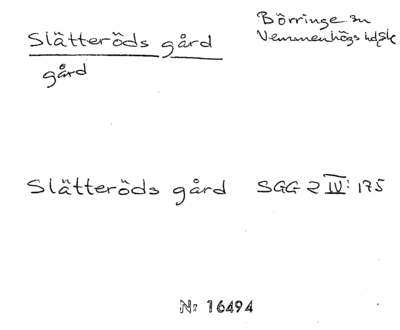 Slätteröds gård
gård
Börringe sn
Vemmenhögs hdsk
Slätteröds gård SGG 2 IV: 175
Nr 16494